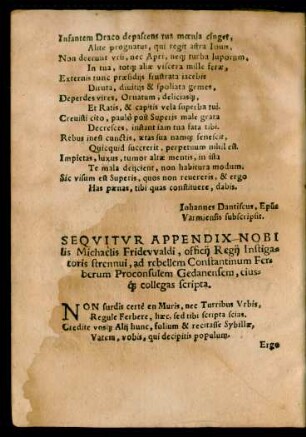 Infantem Draco depascens tua mœnia cinget,
Alite prognatus, qui regit astra Iouis.
Non deerunt vrsi, nec Apri, neq; turba luporum,
In tua, totq; aliæ viscera mille feræ,
Externis tunc præsidijs frustrata iacebis
Diruta, diuitijs & spoliata gemes,
Deperdes vires, Ornatum, deliciasq;
Et Ratis, & capitis vela superba tui.
Creuisti cito, pauló post Superis male grata
Decresces, instant iam tua fata tibi.
Rebus inest cunctis, ætas sua namq; senescit,
Quicquid succrerit, perpetuum nihil est.
Impietas, luxus, tumor altæ mentis, in ista
Te mala deijcient, non habitura modum,
Sic visum est Superis, quos non reuereris, & ergo
Has pænas, tibi quas constituere, dabis.
Iohannes Dantiscus, Epſus
Varmiensis subscripsit.
SEQVITVR APPENDIX NOBI
lis Michaelis Fridevvaldi, officij Regij Instiga
toris strennui, ad rebellem Constantinum Fer
berum Proconsulem Gedanensem, eius-
q; collegas scripta.
NON surdis certé en Muris, nec Turribus Vrbis,
Regule Ferbere, hæc, sed tibi scripta scias.
Credite vosq; Alij hunc, folium & recitasse Sybillæ,
Vatem, vobis, qui decipitis populum.
Ergo